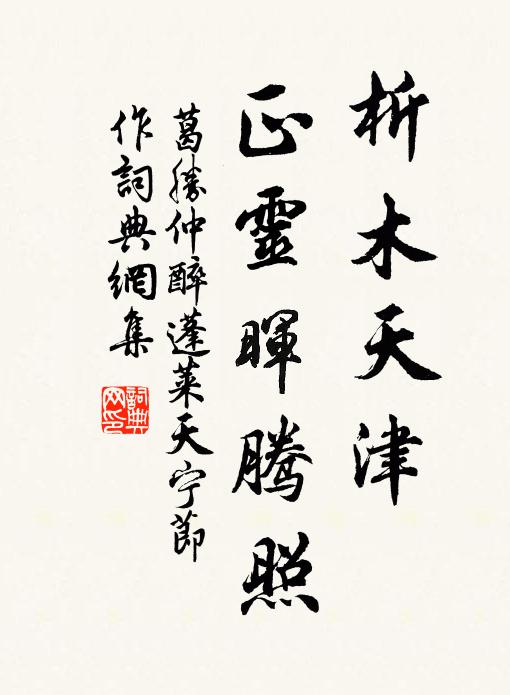 析木天津
正靈暉騰照
葛勝仲醉蓬萊天宁節
作詞典網集
詞典
网印